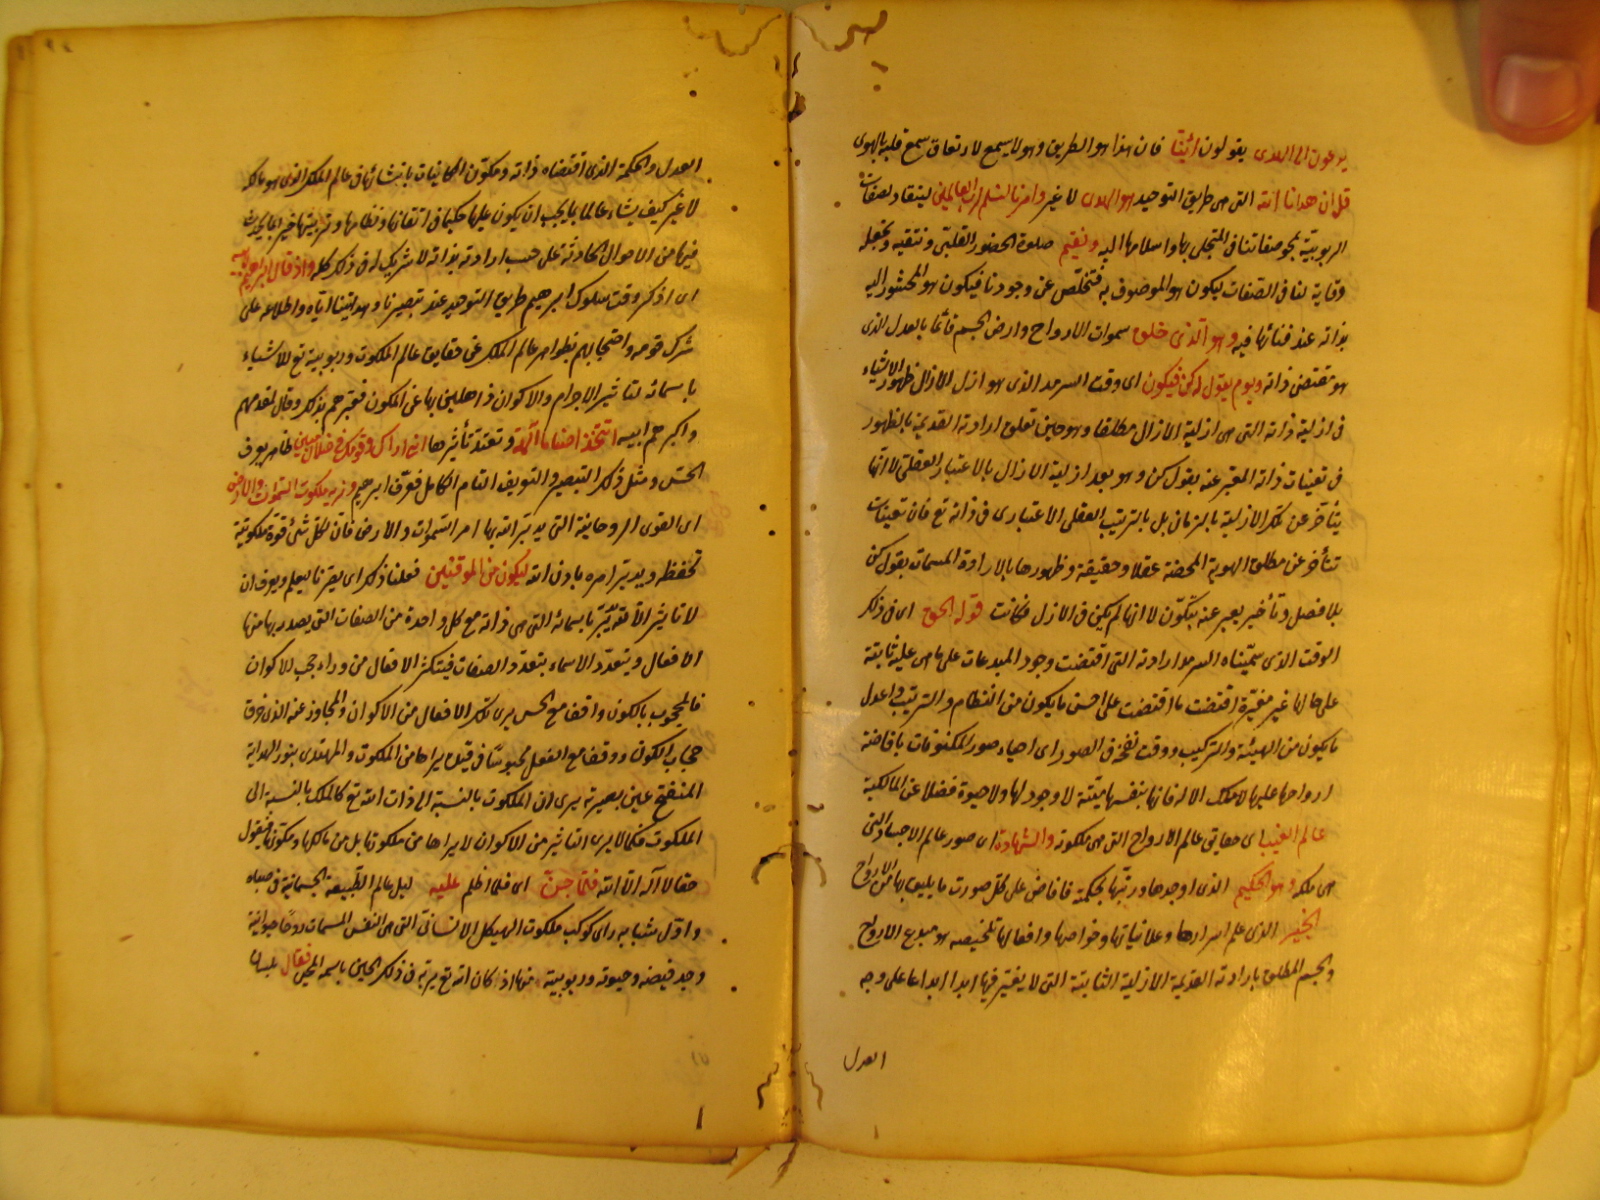 يدعون الى الهدى يقولون ائتنا فان هذا هو الطريق وهو لا يسمع لارتفاع سمع قلبه بالهوى
قل ان هدانا الله التى هى طريق التوحيد هو الهدى لا غير وامرنا لنسلم لرب العالمين لينقاد لصفات
الربوبية بمحو صفاتنا فى المتجلى بها واسلامها اليه ونقيم صلوة الحضور القلبى ونتقيه ونجعله
وقاية لنا فى الصفات ليكون هو الموصوف به فنتخلص عن وجودنا فيكون هو المحشور اليه
بذاته عند فنائنا فيه وهو الذى خلق سموات الارواح وارض الجسم قائما بالعدل الذى
هو مقتضى ذاته ويوم يقول له كن فيكون اى وقت السرمد الذى هو ازل الازال ظهور الاشياء
فى ازلية ذاته التى هى ازلية الازال مطلقا وهو حين تعلق ارادته القديمة بالظهور
فى تعينات ذاته المعبر عنه بقول كن وهو بعد ازلية الازال بالاعتبار العقلى لا انها
يتأخر عن تلك الازلية بالزمان بل بالترتيب العقلى الاعتبارى فى ذاته تع فان تعينات
تتأخر عن مطلق الهوية المحضة عقلا وحقيقة وظهورها بالارادة المسمات بقول كن
بلا فصل وتأخير يعبر عنه بتكون لا انها لم يكن فى الازل فكانت قوله الحق اى فى ذلك
الوقت الذى سميناه السرمد ارادته التى اقتضت وجود المبدعات على ما هى عليه ثابتة
على حالها غير متغيرة اقتضت ما اقتضت على احسن ما يكون من النظام والترتيب واعدل
ما يكون من الهيئة والتركيب ووقت نفخه فى الصور اى احياء صور المكنونات بافاضة
ارواحها عليها لا ملك الا له فانها بنفسها ميتة لا وجود لها ولا حيوة فضلا عن المالكية
عالم الغيب اى حقايق عالم الارواح التى هى ملكوته والشهادة اى صور عالم الاجساد التى
هى ملكه وهو الحكيم الذى اوجدها ورتبها بحكمته فافاض على كل صورة ما يليق بها من الارواح
الخبير الذى علم اسرارها وعلانياتها وخواصها وافعالها تلخيصه هو مبدع الارواح
والجسم المطلق بارادته القديمة الازلية الثابتة التى لا يتغير فيها ابدا ابداعا على وجه
العدل
العدل والحكمة الذى اقتضاه ذاته ومكون الكائنات بانشائها فى عالم الملك الذى هو مالكه
لا غير كيف يشاء عالما بما يجب ان يكون عليها حكيما فى اتقانها ونظامها وترتيبها خبيرا بما يحدث
فيها من الاحوال الحادثة على حسب ارادته بذاته لا شريك له فى ذلك كله واذ قال ابرهيم لابيه
اى اذكر وقت سلوك ابرهيم طريق التوحيد عند تبصيرنا وهدايتنا اياه واطلاعه على
شرك قومه واحتجابهم بظواهر عالم الملك عن حقايق عالم الملكوت وربوبية تع للاشياء
باسمائه لتأثير الاجرام والاكوان ذاهلين بها عن المكون فعبرهم بذلك وقال لمقدمهم
واكبرهم ابيه اتتخذ اصناما آلهة وتعتقد تأثيرها انى اراك وقومك فى ضلال مبين ظاهر يعرف
الحس ومثل ذلك التبصير والتعريف التام الكامل فعرف ابرهيم ونريه ملكوت السموات والارض
اى القوى الروحانية التى يدبر الله بها امر السموات والارض فان لكل شئ قوة ملكوتية
تحفظه ويدبر امره باذن الله ليكون من الموقنين فعلنا ذلك اى بصرنا ليعلم ويعرف ان
لا تاثير الا لله يدبر باسمائه التى هى ذاته مع كل واحدة من الصفات التى يصدر بها منها
الافعال ويتعدد الاسماء بتعدد الصفات فيتكثر الافعال من وراء حجب الاكوان
فالمحجوب بالكون واقف مع الحس يرى تلك الافعال من الاكوان والمجاوز عنه الذى خرق
حجاب الكون ووقف مع العقل محبوسا فى قيده يراها من الملكوت والمهتدى بنور الهداية
المنفتح عين بصيرته يرى ان الملكوت بالنسبة الى ذات الله تع كالملك بالنسبة الى
الملكوت فكما لا يرى التاثير من الاكوان لا يراها من ملكوتها بل من مالكها ومكونها فيقول
حقا لا آله الا الله فلما جن اى فلما اظلم عليه ليل عالم الطبيعة الجسمانية فى صباه
واول شبابه راى كوكب ملكوت الهيكل الانسانى التى هى النفس المسمات روحا حيوانية
وجد فيضه وحيوته وربوبيته منها اذ كان الله تع يربه فى ذلك الحين باسمه المحيى فقال